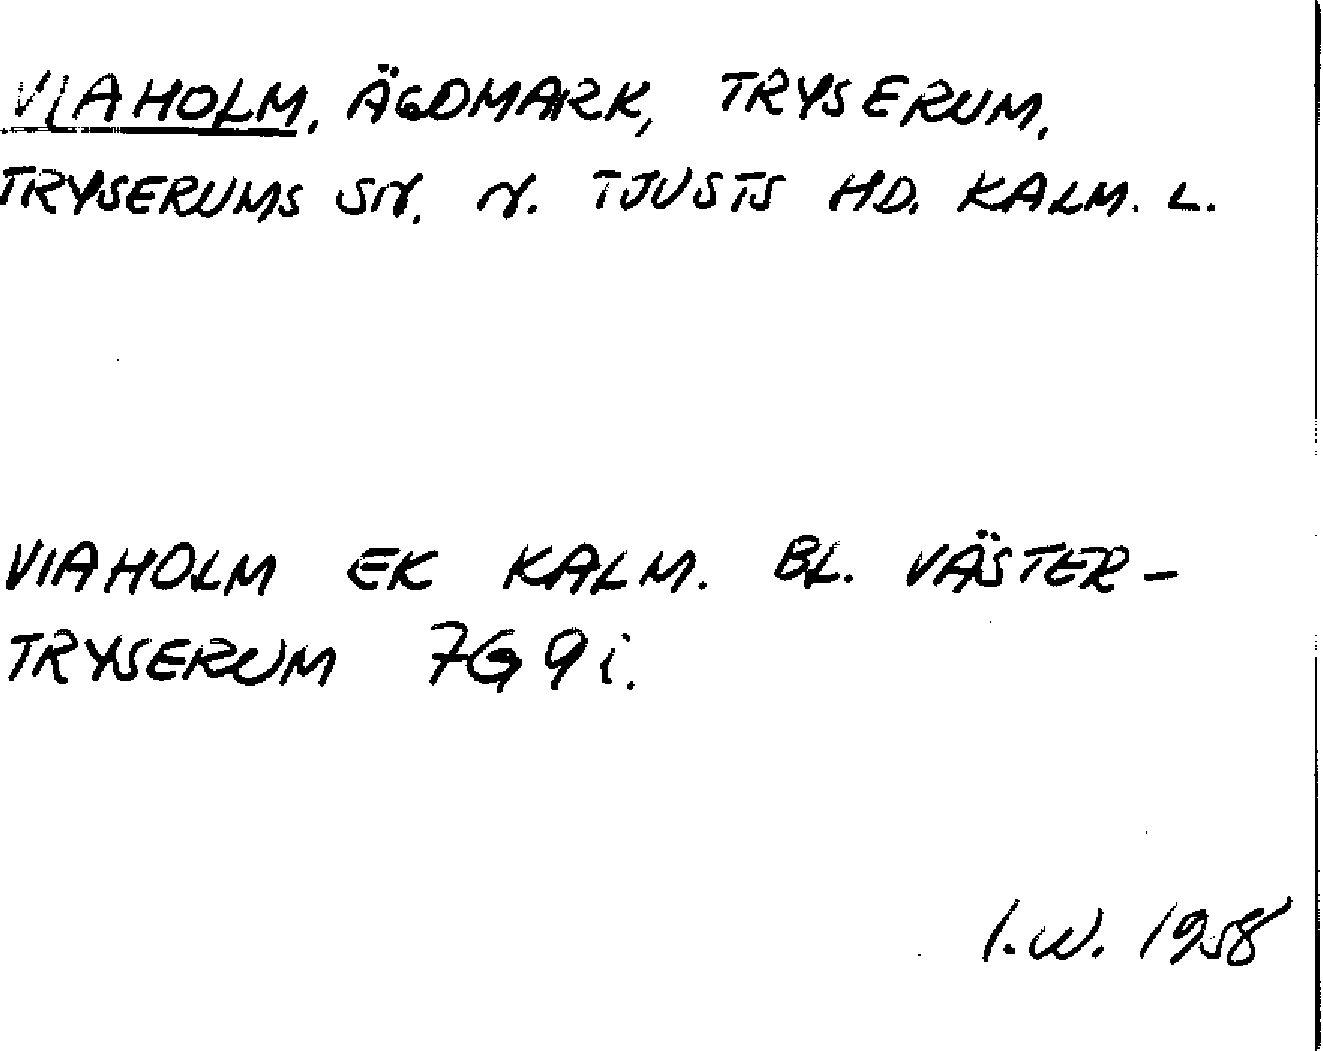 VIAHOLM, ÄGOMARK, TRYSERUM,
TRYSERUMS SN. N. TJUSTS HD. KALM. L.
VIAHOLM EK KALM. BL. VÄSTER-
TRYSERUM 7G 9i.
I.W. 1958